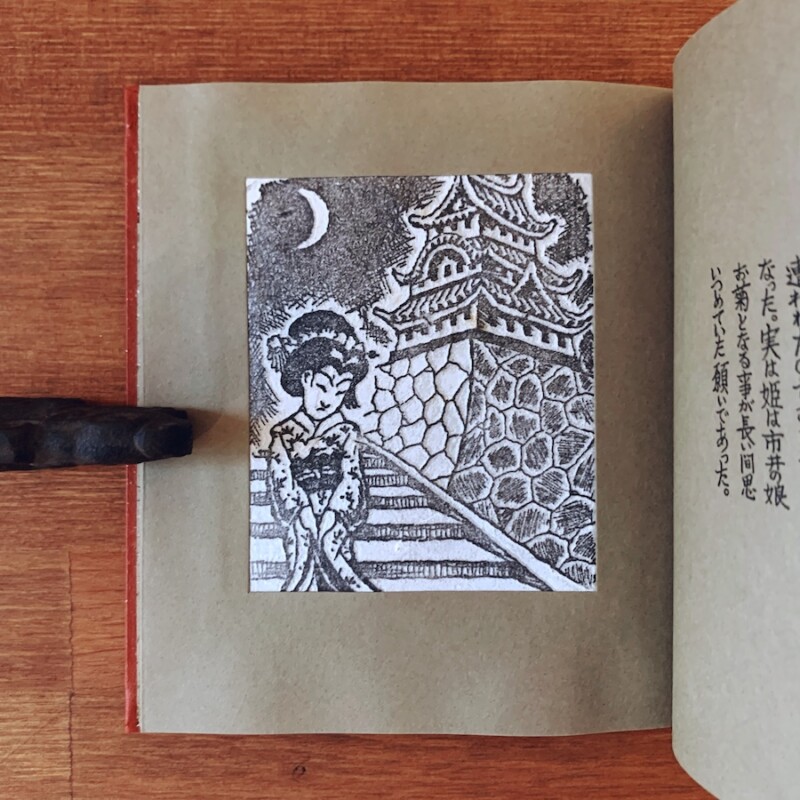 なった。実は姫は市井の娘
お菊となる事が長い間思
いつめていた願いであった。